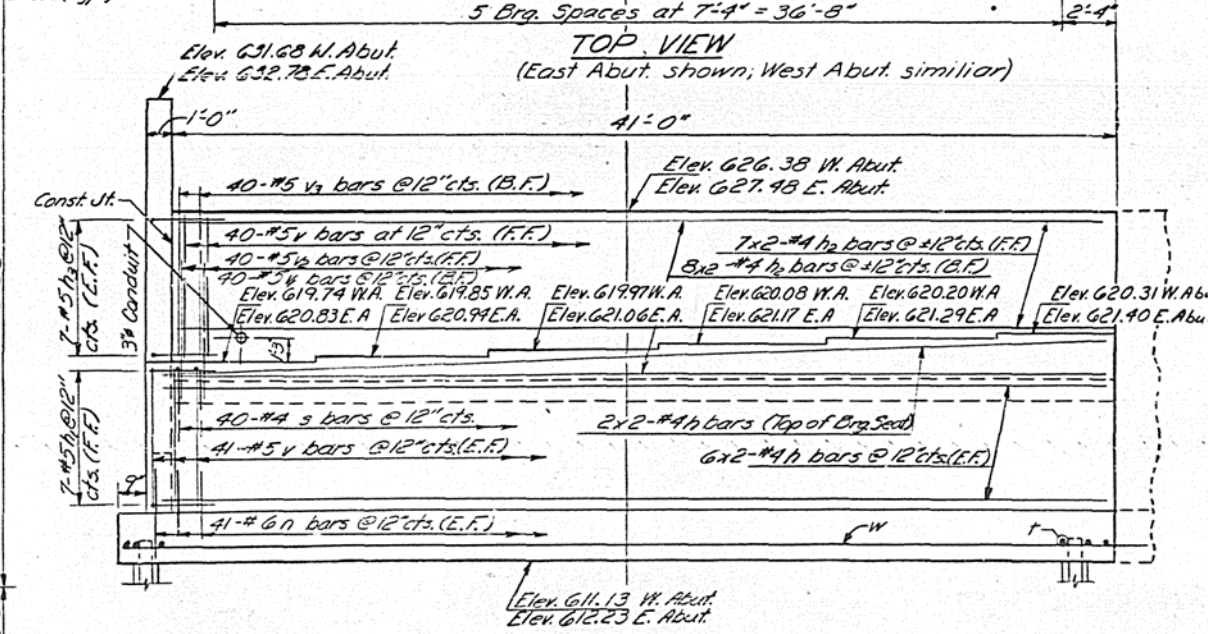 5 Brg. Spaces at 7'-4" = 36'-8"
2'-4"
TOP VIEW
(East Abut. shown; West Abut. similiar)
Elev. 631.68 W. Abut.
Elev. 632.78 E. Abut.
1'-0"
41'-0"
Elev. 626.38 W. Abut.
Elev. 627.48 E. Abut.
40-#5 v3 bars @12"cts. (B.F.)
Const. Jt.
40-#5 v bars at 12"cts. (F.F.)
7x2-#4 h2 bars @ ±12"cts. (F.F.)
40-#5 v2 bars @12"cts. (F.F.)
8x2-#4 h2 bars @ ±12"cts. (B.F.)
40-#5 v bars @12"cts. (B.F.)
7-#5 h3 @12"
cts. (E.F.)
3"ø Conduit
Elev. 619.74 W.A.
Elev. 620.83 E.A
Elev. 619.85 W.A.
Elev. 620.94 E.A.
Elev. 619.97 W.A.
Elev. 621.06 E.A.
Elev. 620.08 W.A.
Elev. 621.17 E.A
Elev. 620.20 W.A
Elev. 621.29 E.A.
Elev. 620.31 W. Abu
Elev. 621.40 E. Abu
13
40-#4 s bars @ 12"cts.
2x2-#4 h bars (Top of Brg. Seat)
41-#5 v bars @12"cts. (E.F.)
6x2-#4 h bars @ 12"cts. (E.F.)
7-#5 h @12"
cts. (F.F.)
9"
41-#6 n bars @12"cts. (E.F.)
w
t
Elev. 611.13 W. Abut.
Elev. 612.23 E. Abut.